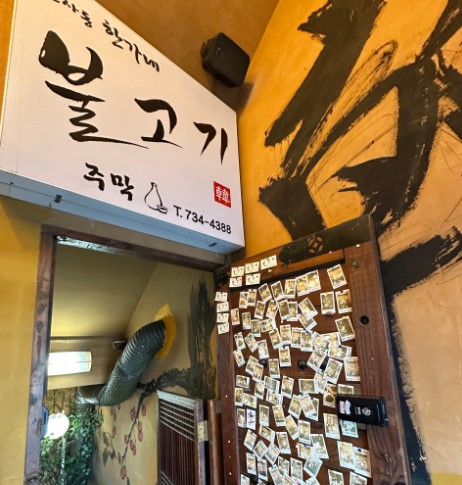 한가네
불고기
주막
T. 734-4388